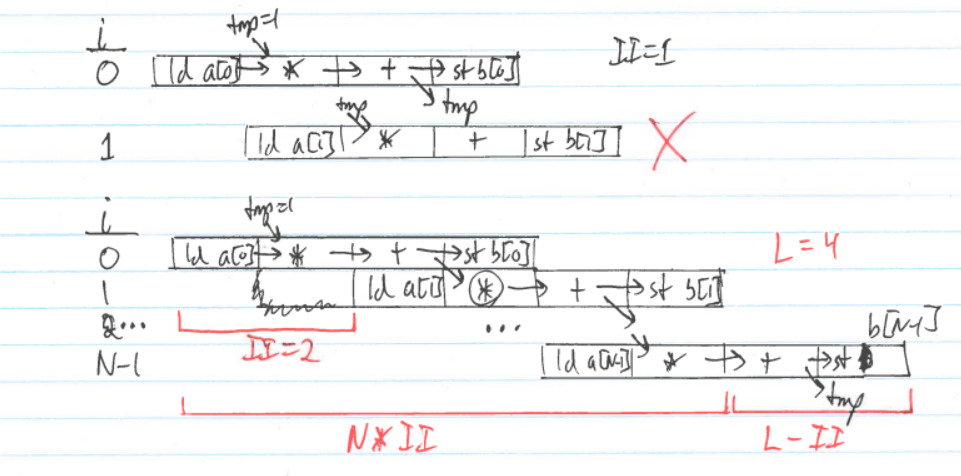 i
tmp=1
0 ld a[0] * + st b[0] II=1
tmp tmp
1 ld a[1] * + st b[1] X
i
tmp=1
0 ld a[0] * + st b[0] L=4
1 ld a[1] * + st b[1]
2... ... b[N-1]
II=2
N-1 ld a[N-1] * + st
tmp
N*II L-II